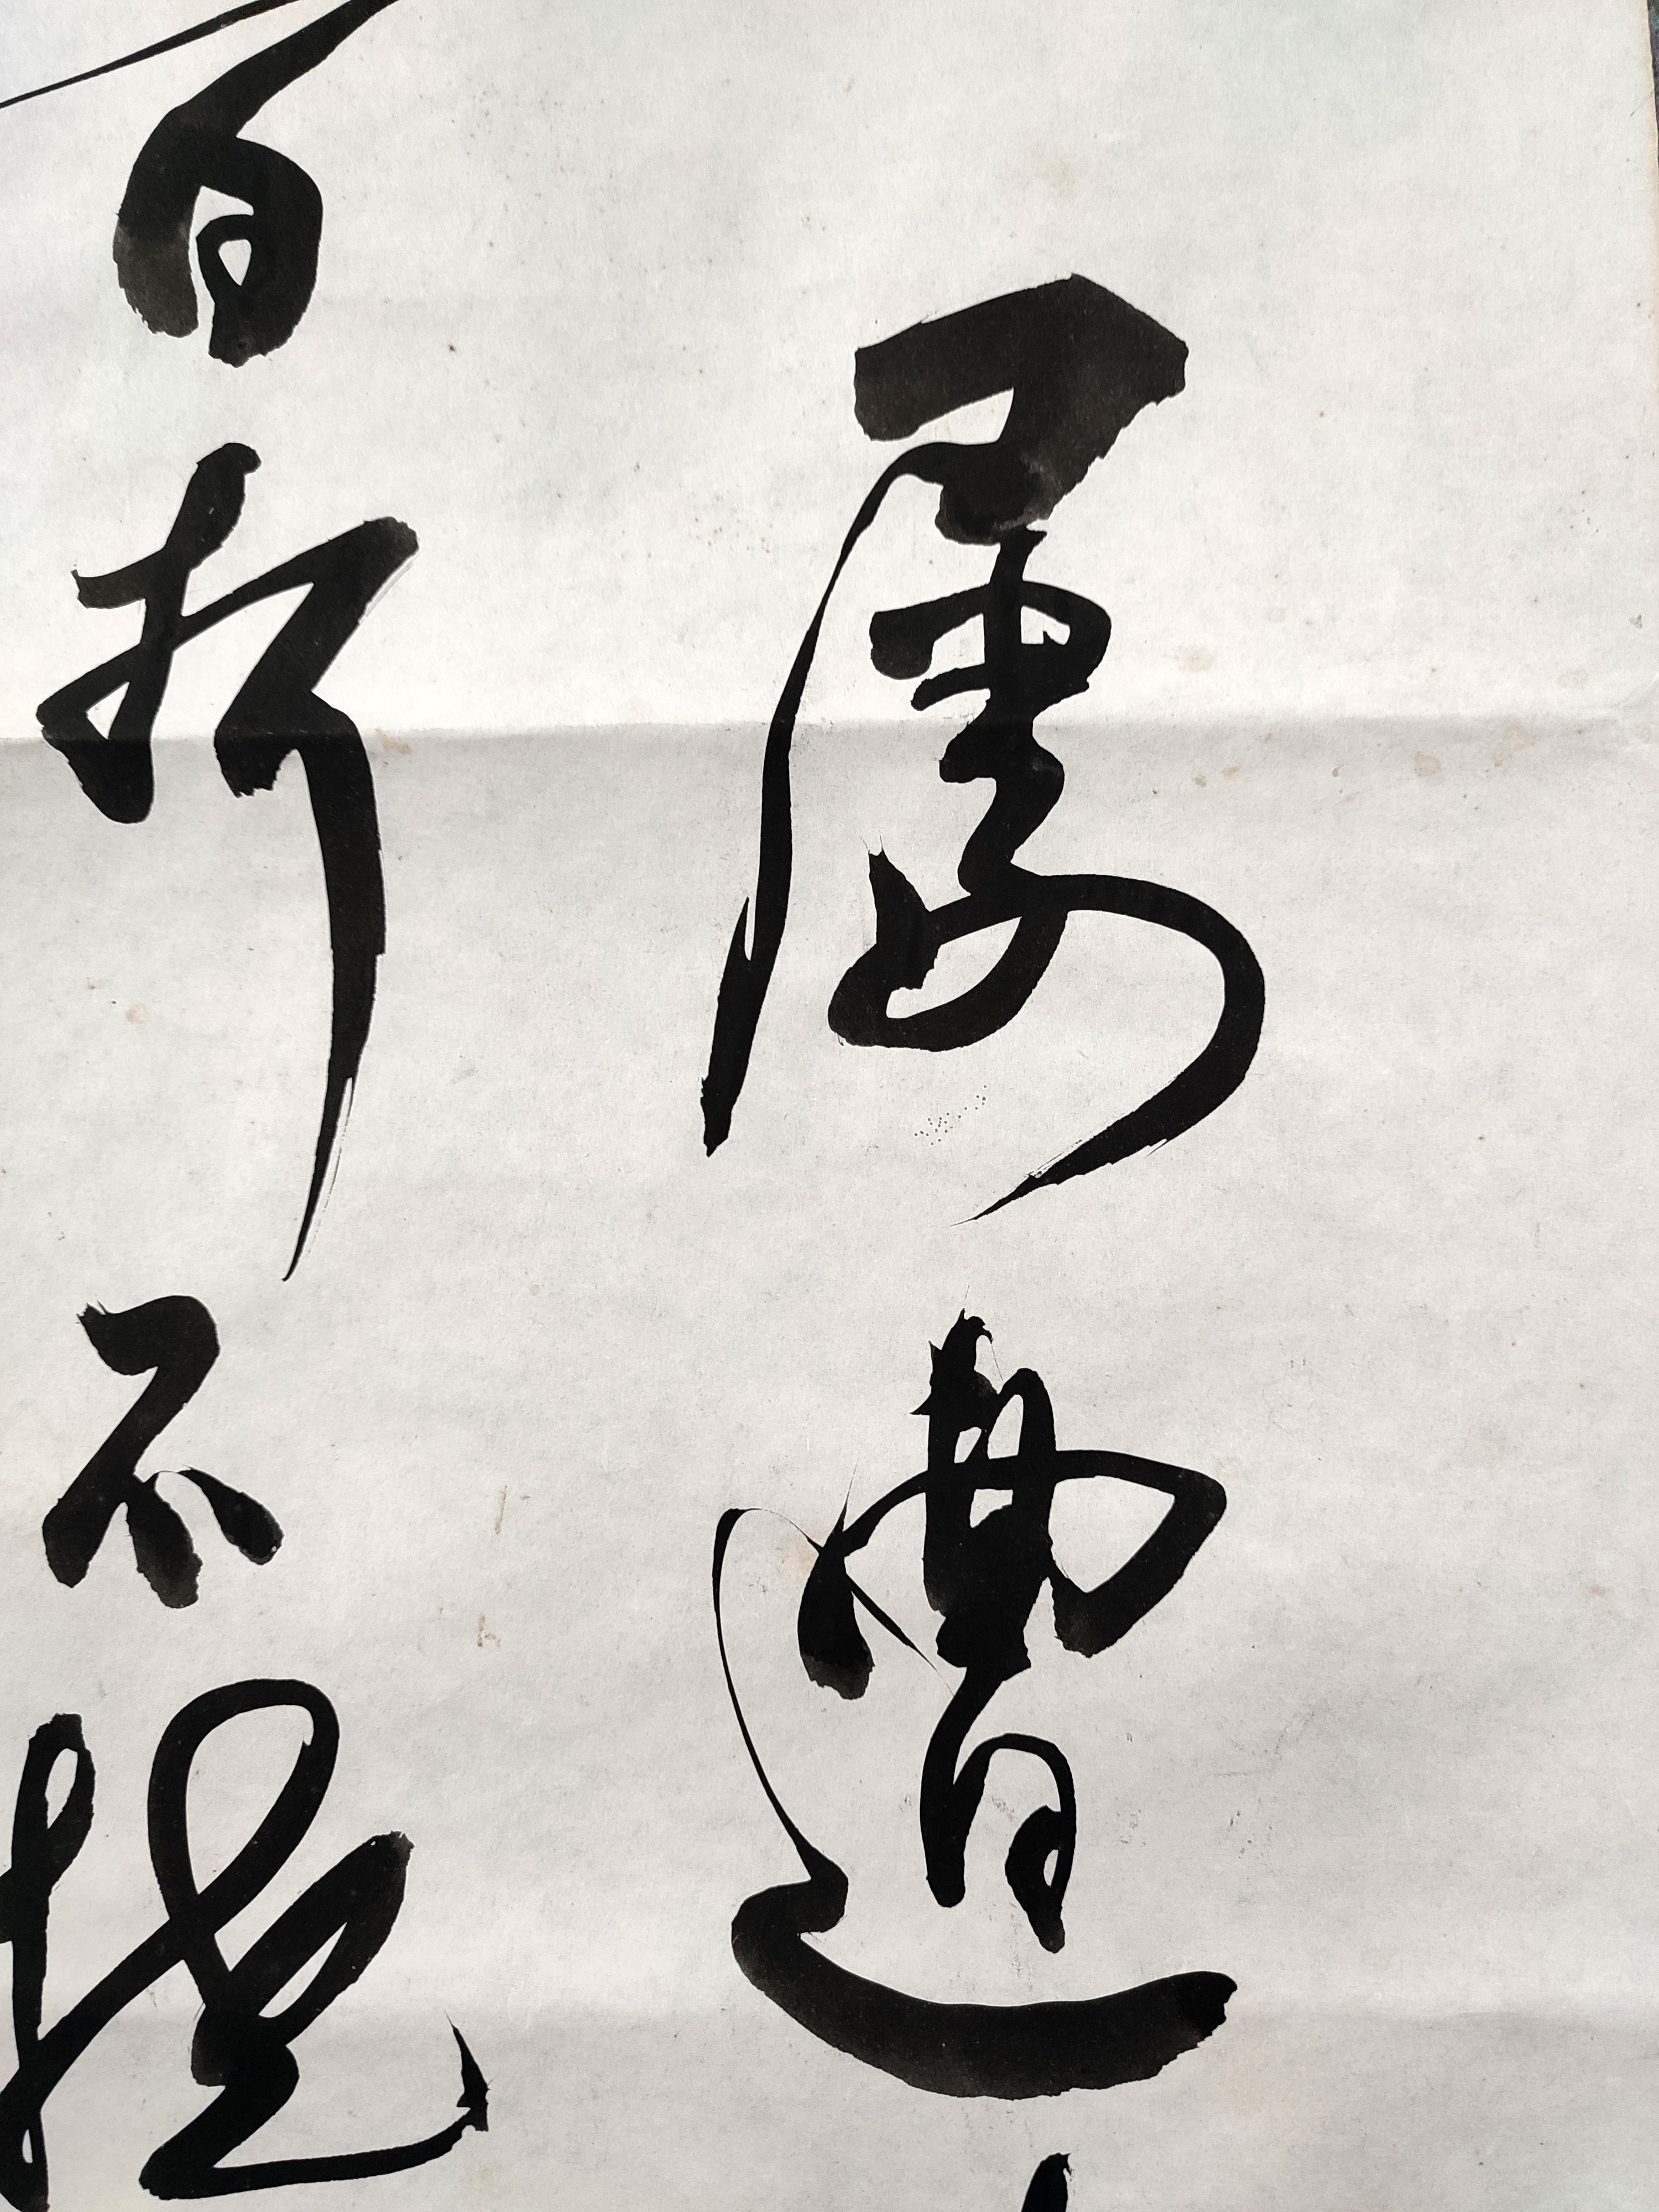 屡遭
百折不挠